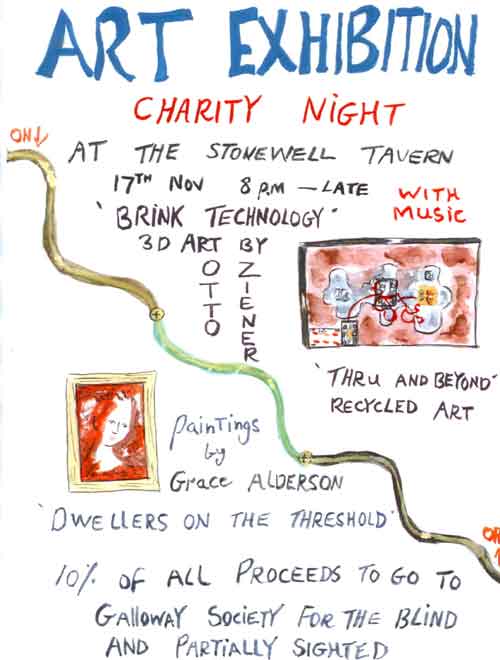 ART EXHIBITION
CHARITY NIGHT
ON
AT THE STONEWELL TAVERN
17TH NOV 8 P.M — LATE
WITH MUSIC
'BRINK TECHNOLOGY'
3D ART BY
OTTO ZIENER
'THRU AND BEYOND'
RECYCLED ART
Paintings
by
Grace ALDERSON
'DWELLERS ON THE THRESHOLD'
10% OF ALL PROCEEDS TO GO TO
GALLOWAY SOCIETY FOR THE BLIND
AND PARTIALLY SIGHTED